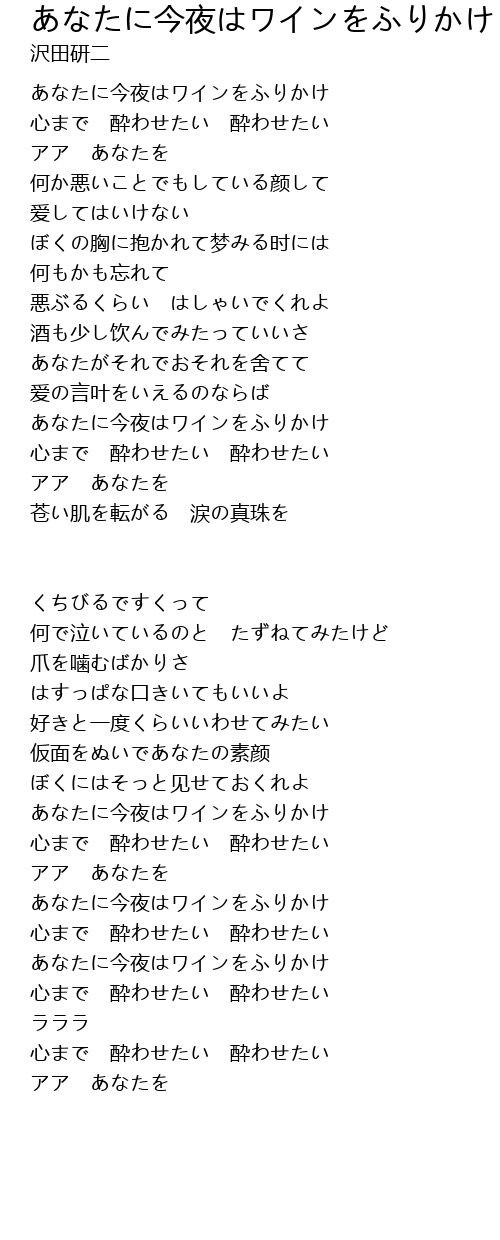 あなたに今夜はワインをふりかけ
沢田研二
あなたに今夜はワインをふりかけ
心まで　酔わせたい　酔わせたい
アア　あなたを
何か悪いことでもしている顔して
爱してはいけない
ぼくの胸に抱かれて梦みる时には
何もかも忘れて
悪ぶるくらい　はしゃいでくれよ
酒も少し饮んでみたっていいさ
あなたがそれでおそれを舍てて
爱の言叶をいえるのならば
あなたに今夜はワインをふりかけ
心まで　酔わせたい　酔わせたい
アア　あなたを
苍い肌を転がる　涙の真珠を
くちびるですくって
何で泣いているのと　たずねてみたけど
爪を噛むばかりさ
はすっぱな口きいてもいいよ
好きと一度くらいいわせてみたい
仮面をぬいであなたの素颜
ぼくにはそっと见せておくれよ
あなたに今夜はワインをふりかけ
心まで　酔わせたい　酔わせたい
アア　あなたを
あなたに今夜はワインをふりかけ
心まで　酔わせたい　酔わせたい
あなたに今夜はワインをふりかけ
心まで　酔わせたい　酔わせたい
ラララ
心まで　酔わせたい　酔わせたい
アア　あなたを